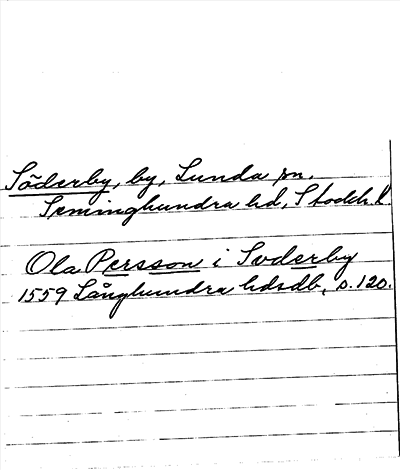 Söderby, by, Lunda sn.
Seminghundra hd, Stockh. l.
Ola Persson i Svderby
1559 Långhundra hdsdb, s. 120.